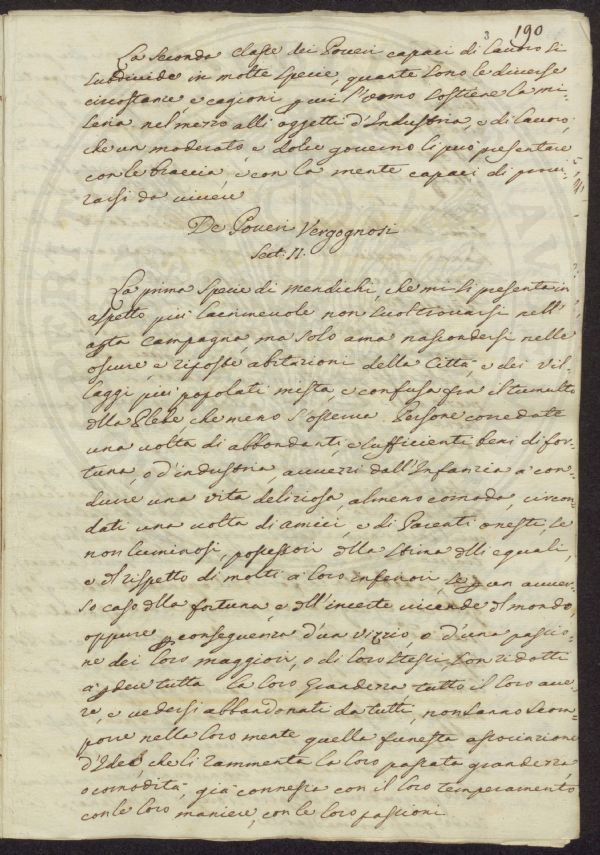 3 190
La seconda Classe dei Poveri capaci di lavoro si
suddivide in molte specie, quante sono le diverse
circostanze, e cagioni p cui l'uomo sostiene la mi-
seria nel mezzo alli oggetti d'Industria, e di lavoro,
che un moderato, e dolce governo li può presentare
con le braccia, e con la mente capaci di procu-
rarsi da vivere
De Poveri Vergognosi
Sect. II.
La prima specie di mendichi, che mi si presenta in
aspetto più lacrimevole non suol trovarsi nell'
apta Campagna, ma solo ama nascondersi nelle
oscure e riposte abitazioni della Città, e dei vil-
laggi più popolati mista, e confusa fra il tumulto
dlla Plebe che meno s'osserva. Persone corredate
una volta di abbondanti, e sufficienti beni di for-
tuna, o d'industria, avvezzi dall'Infanzia a con-
durre una vita deliziosa, almeno comoda, circon-
dati una volta di amici, e di Parenti onesti, se
non luminosi, possessori dlla stima dlli eguali,
e dl rispetto di molti a loro inferiori, se p un avver-
so caso dlla fortuna, e dll'incerte vicende dl mondo,
oppure p conseguenza d'un vizzio, o d'una passio-
ne dei loro maggiori, o di loro stessi son ridotti
a pdere tutta la loro grandezza tutto il loro ave-
re, e vedersi abbandonati da tutti, non sanno scom-
porre nella loro mente quella funesta associazione
d'Idee, che li rammenta la loro passata grandezza,
o comodità, già connessa con il loro temperamento,
con le loro maniere, con le loro passioni